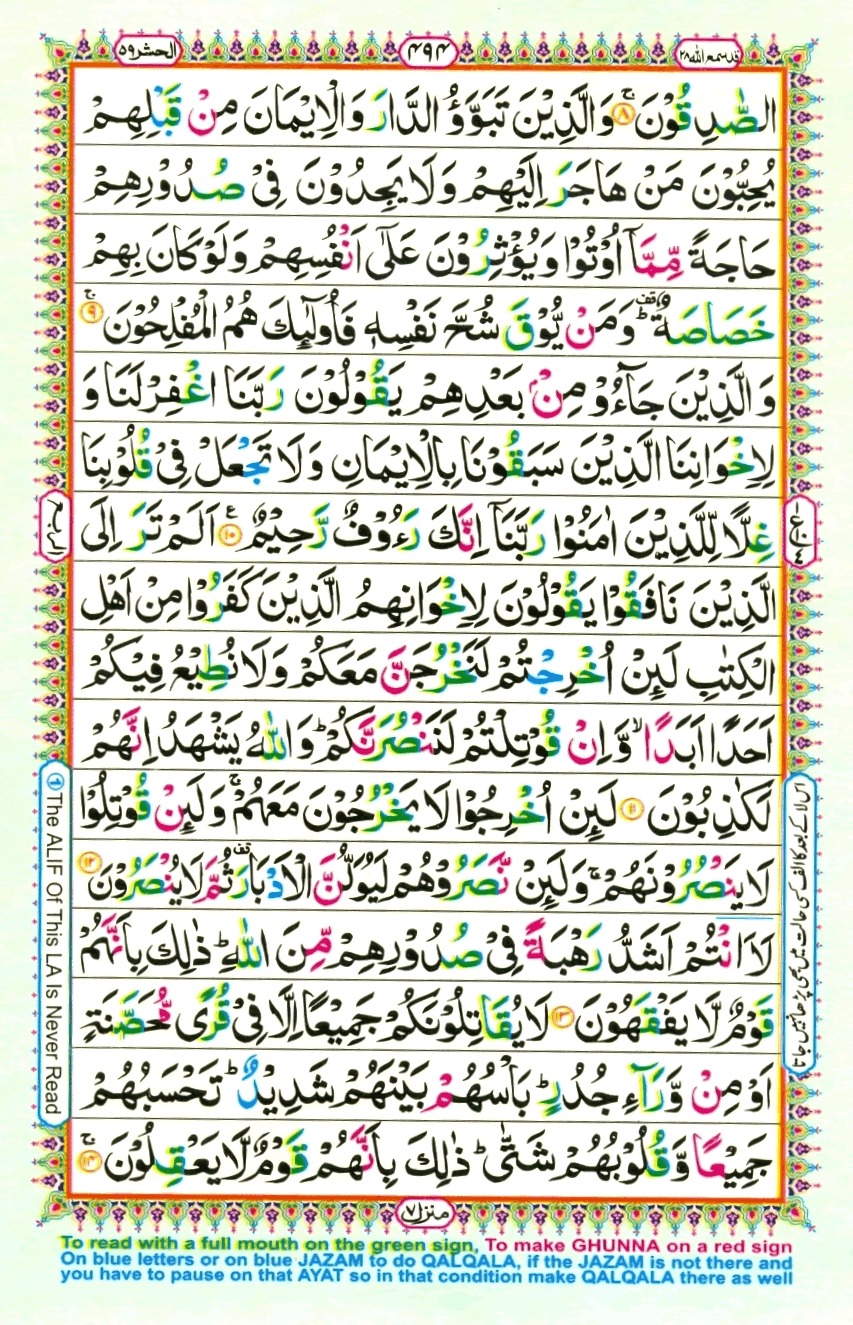 قد سمع الله ٢٨
٤٩٤
الحشر ٥٩
الصّٰدِقُوْنَ ۚ﴿۸﴾ وَالَّذِيْنَ تَبَوَّؤُ الدَّارَ وَالْاِيْمَانَ مِنْ قَبْلِهِمْ
يُحِبُّوْنَ مَنْ هَاجَرَ اِلَيْهِمْ وَلَا يَجِدُوْنَ فِيْ صُدُوْرِهِمْ
حَاجَةً مِّمَّآ اُوْتُوْا وَيُؤْثِرُوْنَ عَلٰٓى اَنْفُسِهِمْ وَلَوْ كَانَ بِهِمْ
خَصَاصَةٌ ؕ۟ وَمَنْ يُّوْقَ شُحَّ نَفْسِهٖ فَاُولٰٓئِكَ هُمُ الْمُفْلِحُوْنَ ۚ﴿۹﴾
وَالَّذِيْنَ جَآءُوْ مِنْۢ بَعْدِهِمْ يَقُوْلُوْنَ رَبَّنَا اغْفِرْ لَنَا وَ
لِاِخْوَانِنَا الَّذِيْنَ سَبَقُوْنَا بِالْاِيْمَانِ وَلَا تَجْعَلْ فِيْ قُلُوْبِنَا
غِلًّا لِّلَّذِيْنَ اٰمَنُوْا رَبَّنَآ اِنَّكَ رَءُوْفٌ رَّحِيْمٌ ﴿۱۰﴾ اَلَمْ تَرَ اِلَى
الَّذِيْنَ نَافَقُوْا يَقُوْلُوْنَ لِاِخْوَانِهِمُ الَّذِيْنَ كَفَرُوْا مِنْ اَهْلِ
الْكِتٰبِ لَئِنْ اُخْرِجْتُمْ لَنَخْرُجَنَّ مَعَكُمْ وَلَا نُطِيْعُ فِيْكُمْ
اَحَدًا اَبَدًا ۙ وَّاِنْ قُوْتِلْتُمْ لَنَنْصُرَنَّكُمْ ؕ وَاللّٰهُ يَشْهَدُ اِنَّهُمْ
لَكٰذِبُوْنَ ﴿۱۱﴾ لَئِنْ اُخْرِجُوْا لَا يَخْرُجُوْنَ مَعَهُمْ ۚ وَلَئِنْ قُوْتِلُوْا
لَا يَنْصُرُوْنَهُمْ ۚ وَلَئِنْ نَّصَرُوْهُمْ لَيُوَلُّنَّ الْاَدْبَارَ ۟ ثُمَّ لَا يُنْصَرُوْنَ ﴿۱۲﴾
لَا۠ اَنْتُمْ اَشَدُّ رَهْبَةً فِيْ صُدُوْرِهِمْ مِّنَ اللّٰهِ ؕ ذٰلِكَ بِاَنَّهُمْ
قَوْمٌ لَّا يَفْقَهُوْنَ ﴿۱۳﴾ لَا يُقَاتِلُوْنَكُمْ جَمِيْعًا اِلَّا فِيْ قُرًى مُّحَصَّنَةٍ
اَوْ مِنْ وَّرَآءِ جُدُرٍ ؕ بَاْسُهُمْ بَيْنَهُمْ شَدِيْدٌ ؕ تَحْسَبُهُمْ
جَمِيْعًا وَّقُلُوْبُهُمْ شَتّٰى ؕ ذٰلِكَ بِاَنَّهُمْ قَوْمٌ لَّا يَعْقِلُوْنَ ۚ﴿۱۴﴾
الربع
① The ALIF Of This LA Is Never Read
اس لا کے بعد کا الف کسی حالت میں بھی پڑھا نہیں جاتا
منزل ٧
To read with a full mouth on the green sign, To make GHUNNA on a red sign
On blue letters or on blue JAZAM to do QALQALA, if the JAZAM is not there and
you have to pause on that AYAT so in that condition make QALQALA there as well